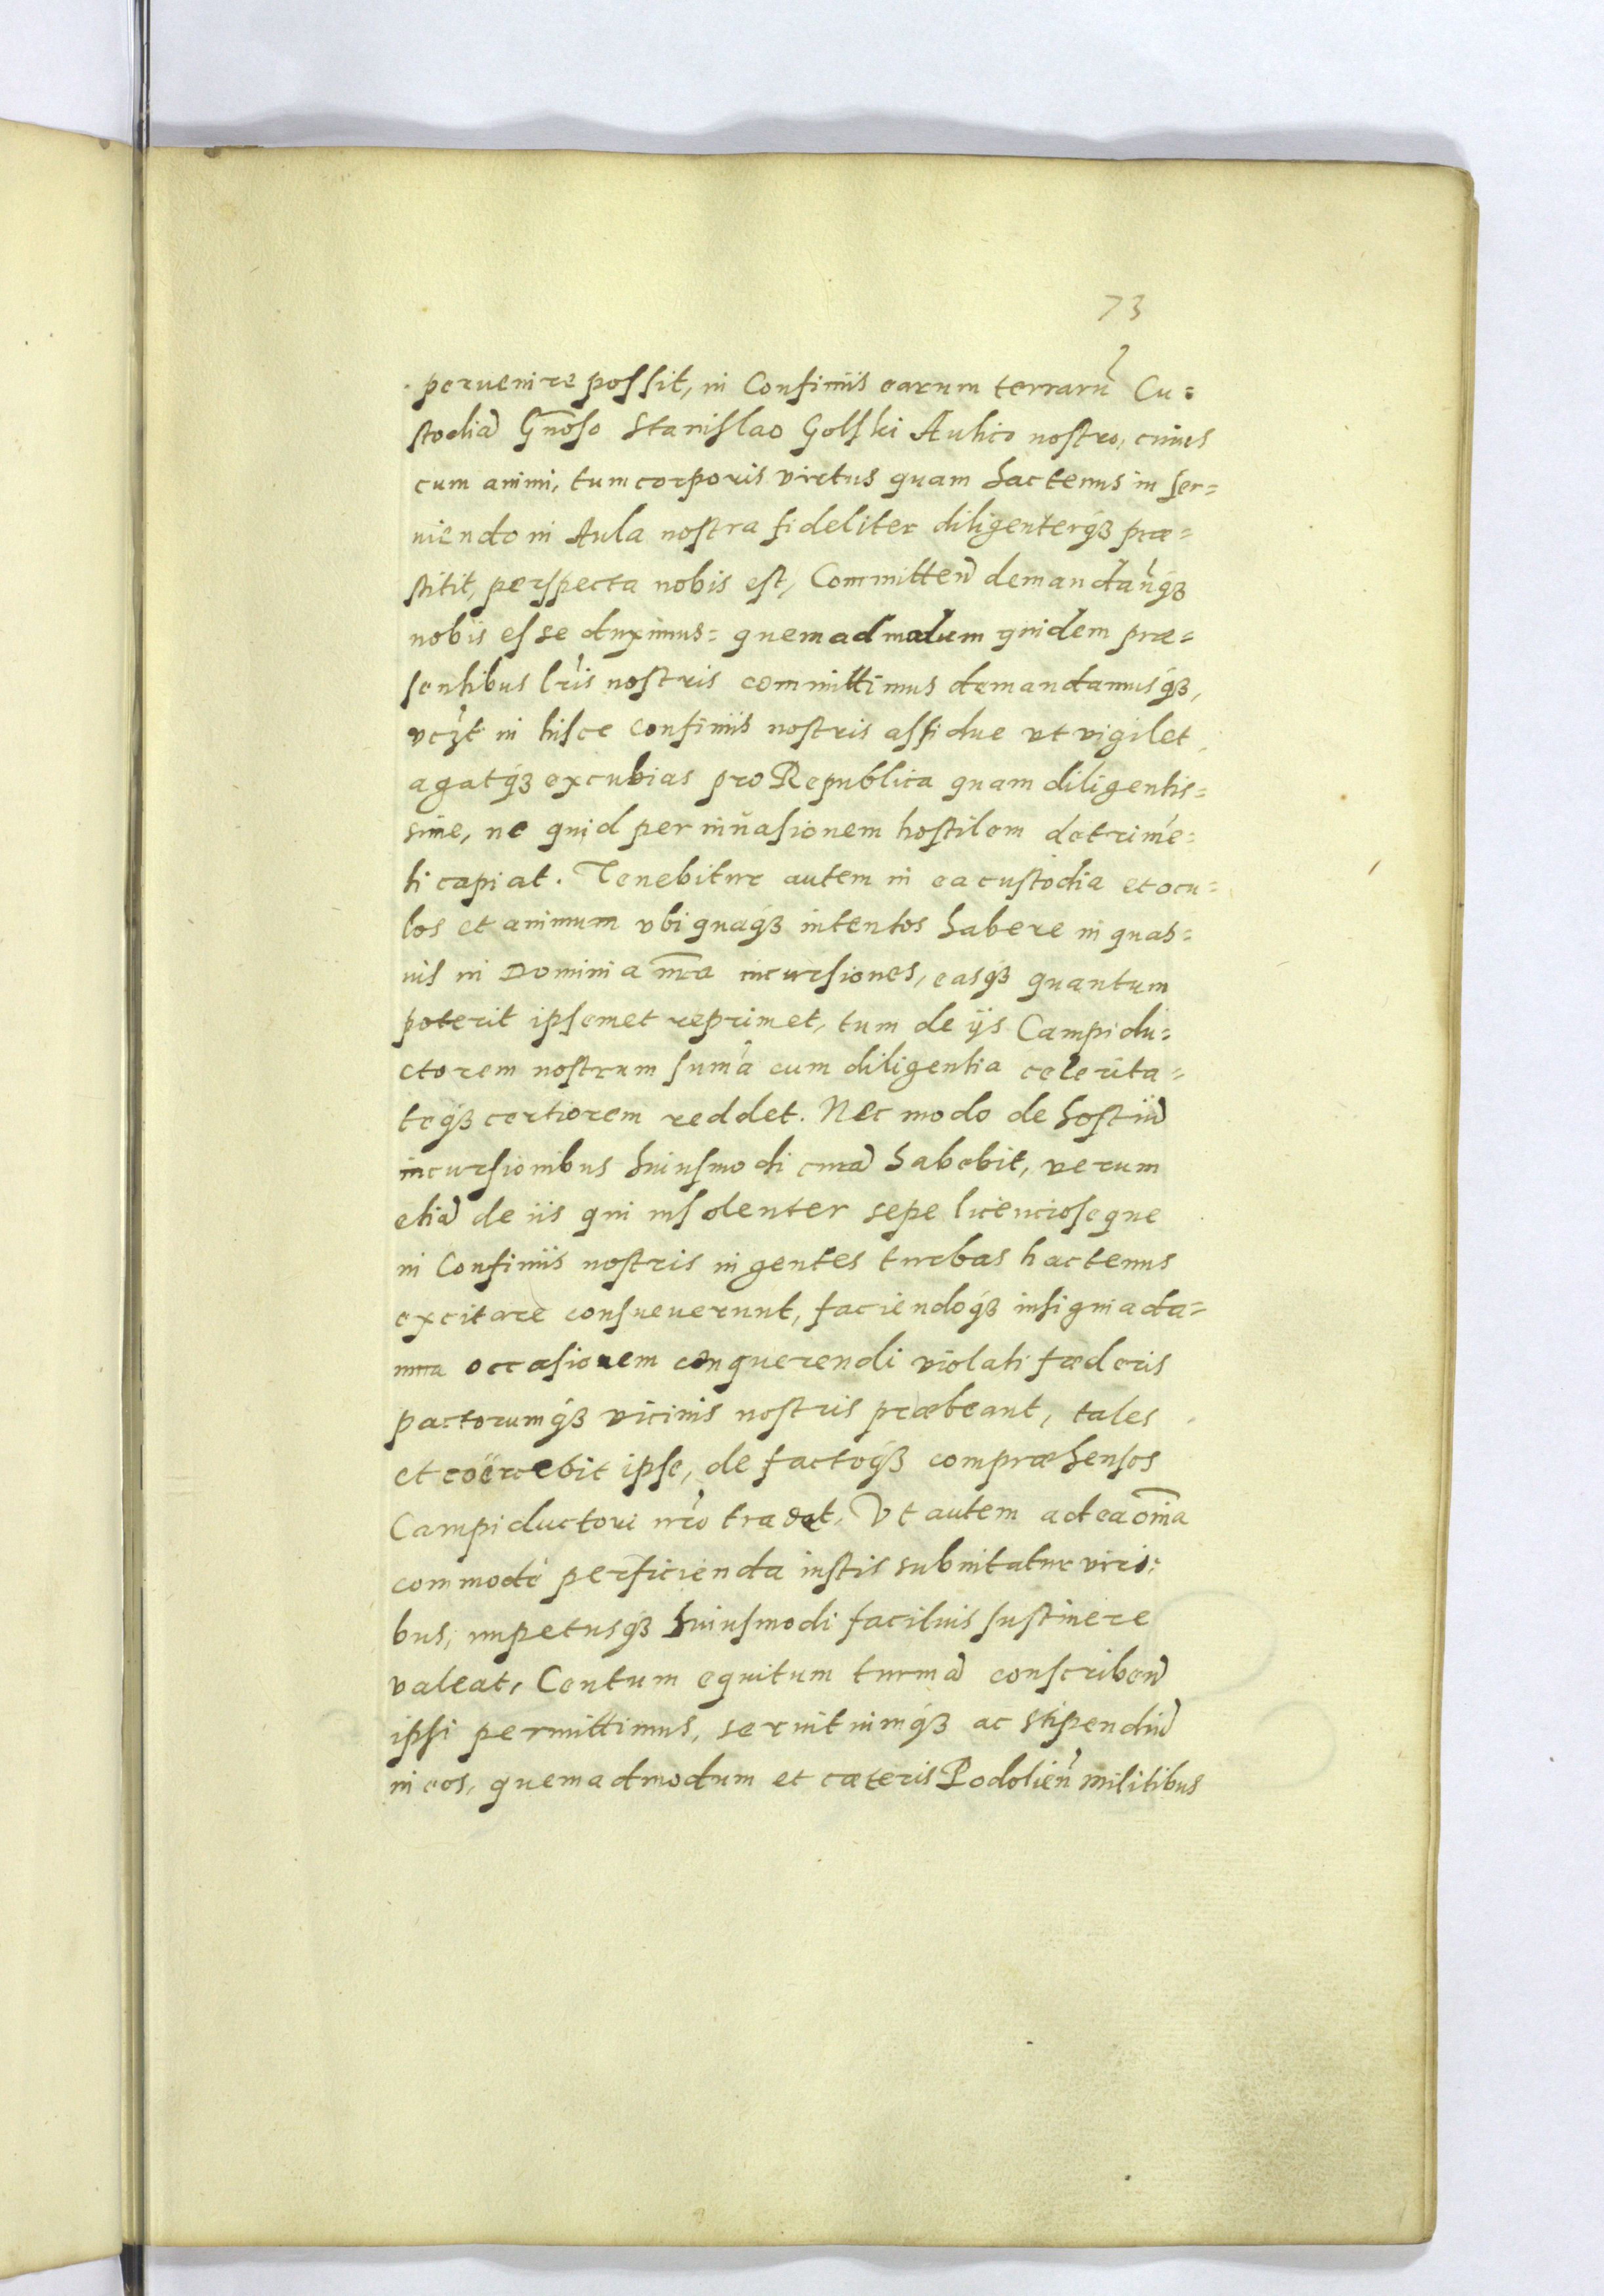 73
peruenire possit, in Confinijs earum terrarū Cu=
stodiā Gñoso Stanislao Golski Aulico nostro, cuius
cum animi, tum corporis virtus quam hactenus in ser=
uiendo in Aula nostra fideliter diligenterq₃ præ=
stitit, perspecta nobis est, Committeñ demandañq₃
nobis esse duximus= quemadmodum quidem præ=
sentibus lr̃is nostris committimus demandamusq₃,
in hisce Confinijs nostris assidue vt vigilet,
agatq₃ excubias pro Republica quam diligentis=
sime, ne quid per inuasionem hostilem detrimē=
ti capiat. Tenebitur autem in ea custodia et ocu=
los et animum vbiquaq₃ intentos habere in quas=
uis in Dominia nr̃a incursiones, easq₃ quantum
poterit ipsemet reprimet, tum de ijs Campidu=
ctorem nostrum sum̃a cum diligentia celerita=
teq₃ certiorem reddet. Nec modo de hostiū
incursionibus huiusmodi curā habebit, verum
etiā de iis qui insolenter sepe licencioseque
in Confinijs nostris ingentes turbas hactenus
excitare consueuerunt, faciendoq₃ insignia da=
mna occasionem conquerendi violati fæderis
pactorumq₃ vicinis nostris præbeant, tales
et coërcebit ipse, de factoq₃ compræhensos
Campiductori nr̃o tradet. Vt autem ad ea om̃ia
commode perficienda iustis subnitatur viri=
bus, impetusq₃ huiusmodi facilius sustinere
valeat, Centum equitum turmā conscribeñ
ipsi permittimus, seruitiumq₃ ac stipendiū
in eos, quemadmodum et cæteris Podolieñ militibus